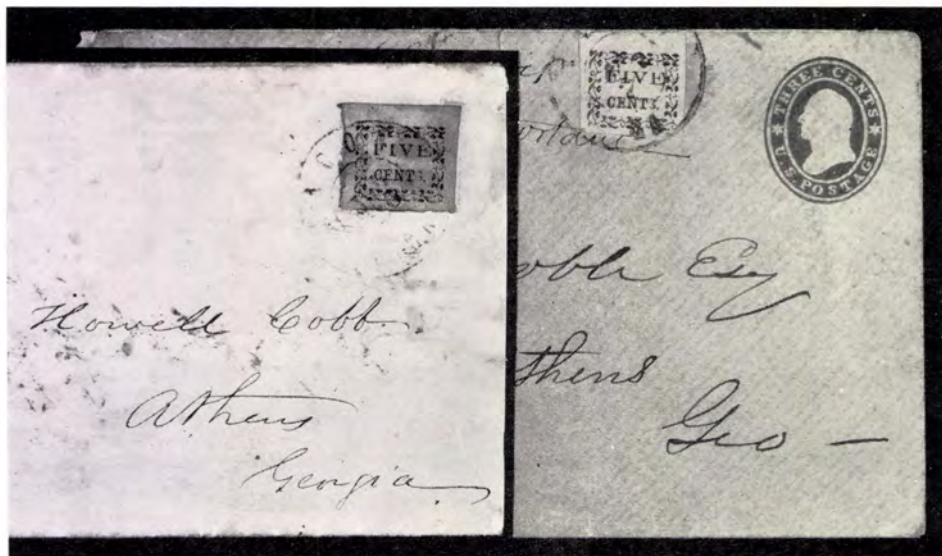 FIVE
CENTS.
Howell Cobb
Athens
Georgia
FIVE
CENTS.
THREE CENTS
U.S. POSTAGE
Esq
thens
Geo —